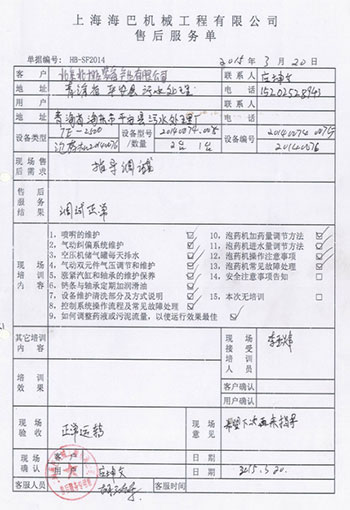 上海海巴机械工程有限公司
售后服务单
单据编号：HB-SF2014 2015年3月20日
客户 联系人
地址 青海省平安县污水处理 联系方式 15202528943
用户
地址 青海省海东市平安县污水处理厂
设备类型 设备数量 2台 1台 设备编号 20140076
现场售后需求 指导调试
售后服务结果 调试正常
现场培训内容
1. 喷嘴的维护
2. 气动纠偏系统维护
3. 空压机储气罐每天排水
4. 气动双元件气压调节和维护
5. 涨紧汽缸和轴承的维护保养
6. 链条与轴承定期加润滑油
7. 设备维护清洗部分及方式说明
8. 控制系统操作流程及常见故障处理
9. 如何调整药液或污泥流量，以便运行效果最佳
10. 泡药机加药量调节方法
11. 泡药机进水量调节方法
12. 泡药机操作注意事项
13. 泡药机常见故障处理
14. 安全注意事项告知
15. 本次无培训
其它培训内容
现场接受培训人员
培训效果
客户确认
用户确认
现场验收 正常运转
现场意见 希望下次再来指导
现场确认 客户 日期
用户 日期 2015.3.20.
客服人员 客服时间